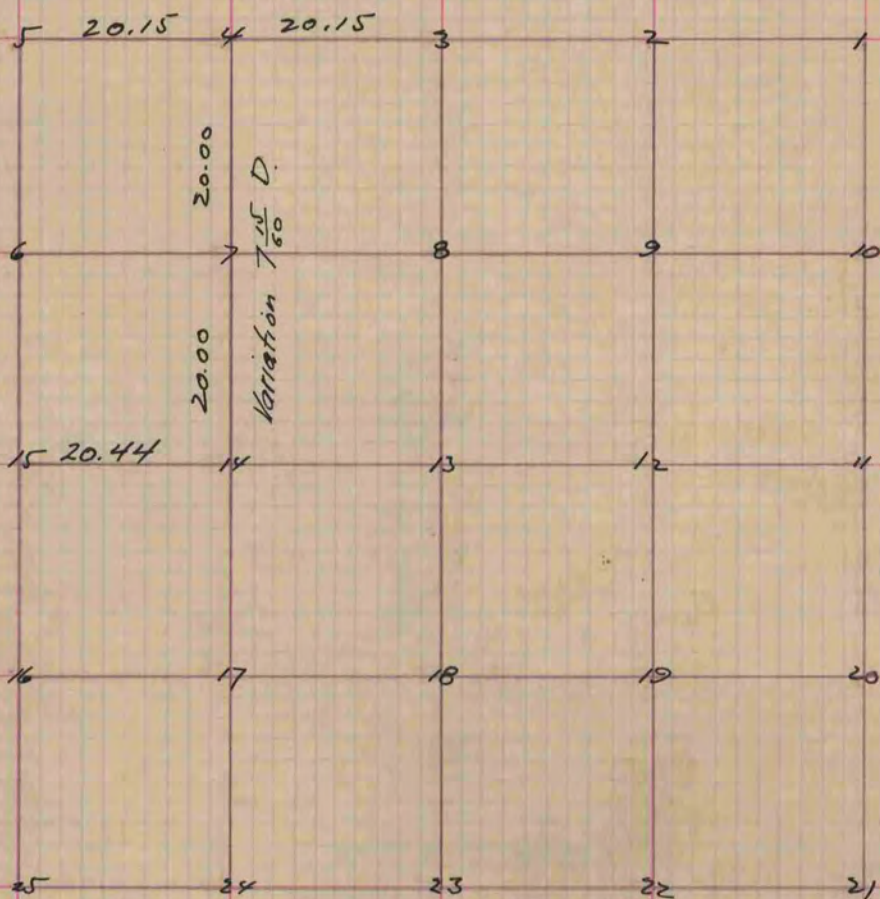 20.15 20.15
5 4 3 2 1
20.00
Variation 7 15/60 D.
6 7 8 9 10
20.00
20.44
15 14 13 12 11
16 17 18 19 20
25 24 23 22 21